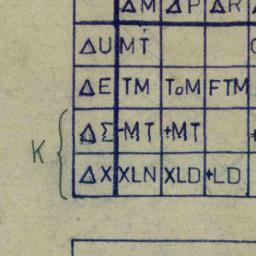 ΔM ΔP ΔR
ΔU MT
ΔE TM ToM FTM
ΔΣ -MT +MT
K
ΔX XLN XLD +LD